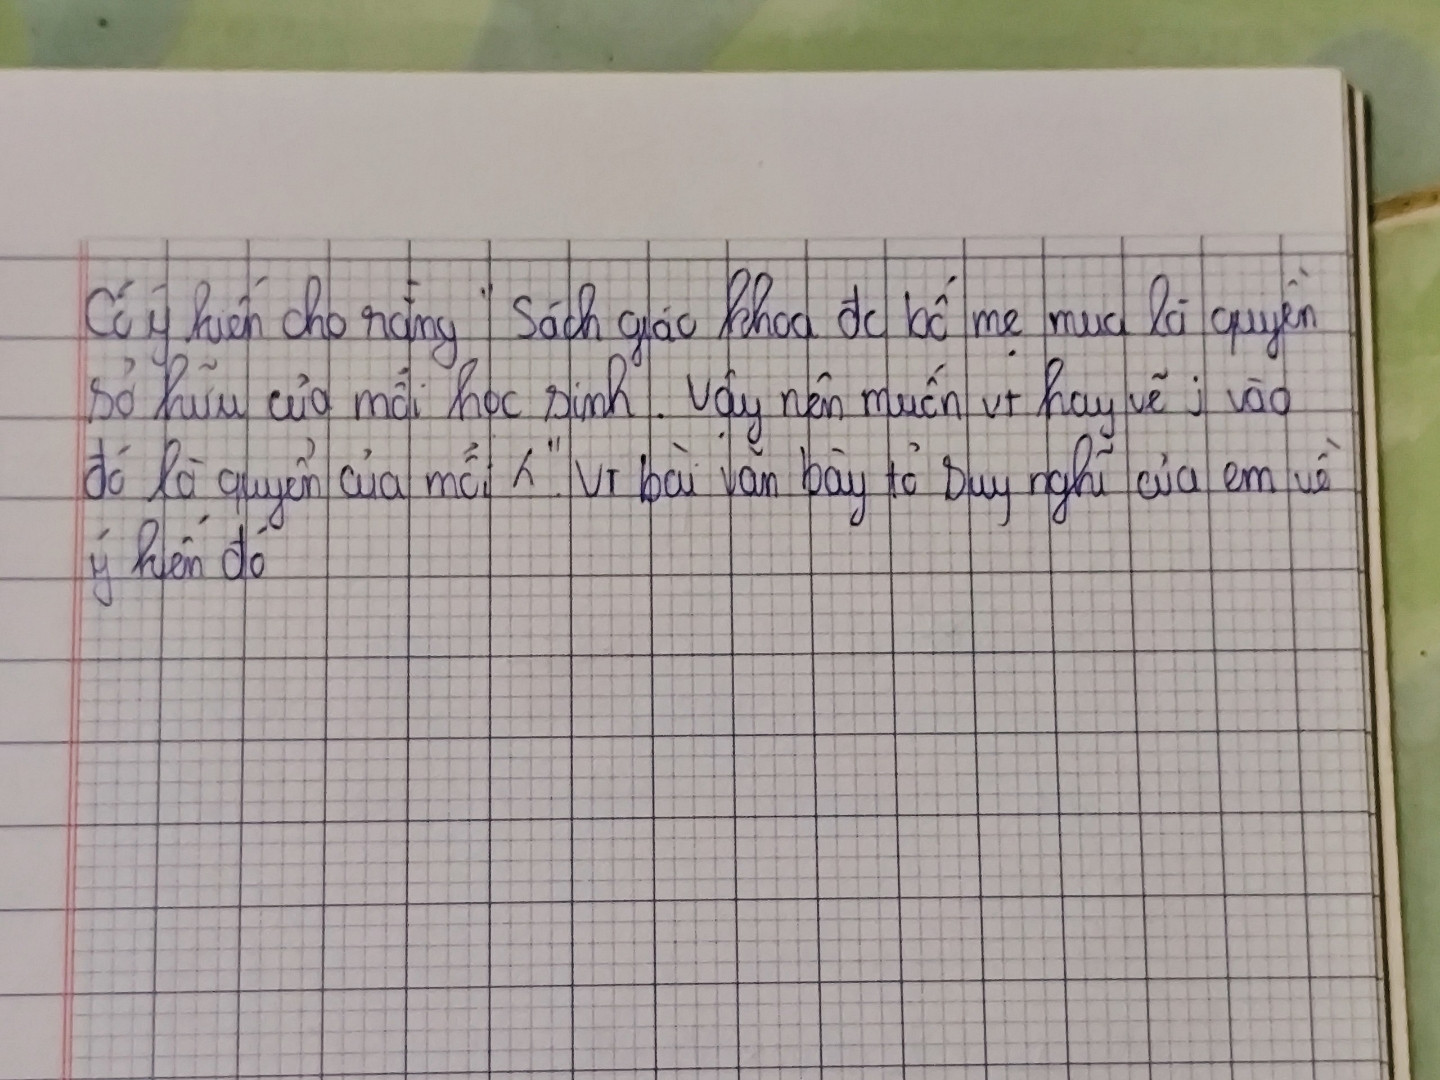 Có ý kiến cho rằng " Sách giáo khoa đc bố mẹ mua là quyền
sở hữu của mỗi học sinh. Vậy nên muốn vt hay vẽ j vào
đó là quyền của mỗi h". Vt bài văn bày tỏ suy nghĩ của em về
ý kiến đó